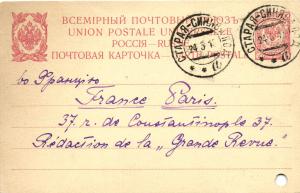 ВСЕМІРНЫЙ ПОЧТОВЫЙ СОЮЗЪ
UNION POSTALE UNIVERSELLE
РОССІЯ—RUSSIE
ПОЧТОВАЯ КАРТОЧКА—CARTE POSTALE
СТАРАЯ-СИНЯВА
Во Францію
France Paris.
37. r. de Constantinople 37.
Rédaction de la „Grande Revue."